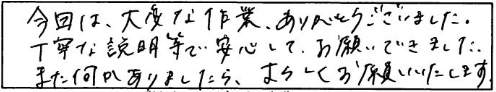 今回は、大変な作業、ありがとうございました。
丁寧な説明等で安心して、お願いできました。
また何かありましたら、よろしくお願いいたします